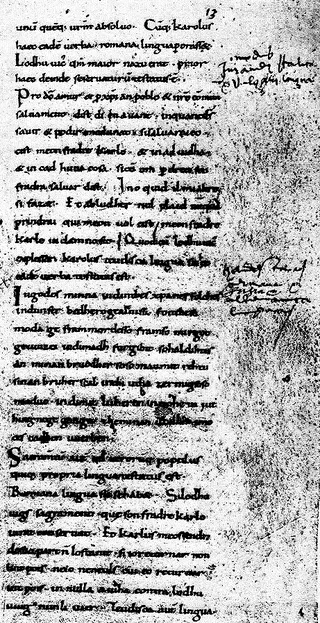 13
unū quēq; urm̄ absoluo. Cūq; karolus
haec eadē uerba romana lingua
Lodhuuic qm̄ maior natu erat. prior
haec deinde seseruaturū testatus ē.
Pro dō amur & p xp̄ian poblo & nrō cōmun
saluament. dist di en auant. inquantds
sauir & podir medunat. sisaluaraieo.
cist meon fradre karlo. & in adiudha
& in cad huna cosa. sicū om p dreit son
fradra saluar dist. Ino quid il mialtre
si faz&. Et abludher nul plaid nūquā
prindrai qui meon uol cist meonfradre
karle in damno sit. Quod cū lodhuuic
explesset. karolus teudisca lingua
eadē uerba testatus est.
Ingodes minna indinthes xp̄anes folches
indunser bedhero gealtnissi. fonthese
moda ge frammordesso framso mirgot
geuuizci indimadh furgibit sohaldih
an minan bruodher soso manmit rehtu
sinan bruher scal inthi utha zermigsoso
maduo. indimit luheren inno
negegango. zheminan uuillon imo
ce scadhen uuerhen.
Sacramentū autē qd utrorumq; populus
quiq; propria lingua testatus est.
Romana lingua sicsehab&. Silodhu
uigs sagrament. que son fradre karlo
iurat conseruat. Et karlus meossendra
desuo part lostanit. si ioreturnar non
lint pois. neio neneuls cui eo returnar
int pois. in nulla aiudha contra lodhu
uuig nunli iuer. Teudisca autē lingua